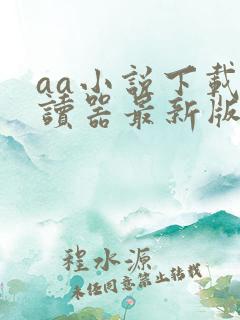 aa小说下载
讀器最新版
程水源
未任同意禁止转载